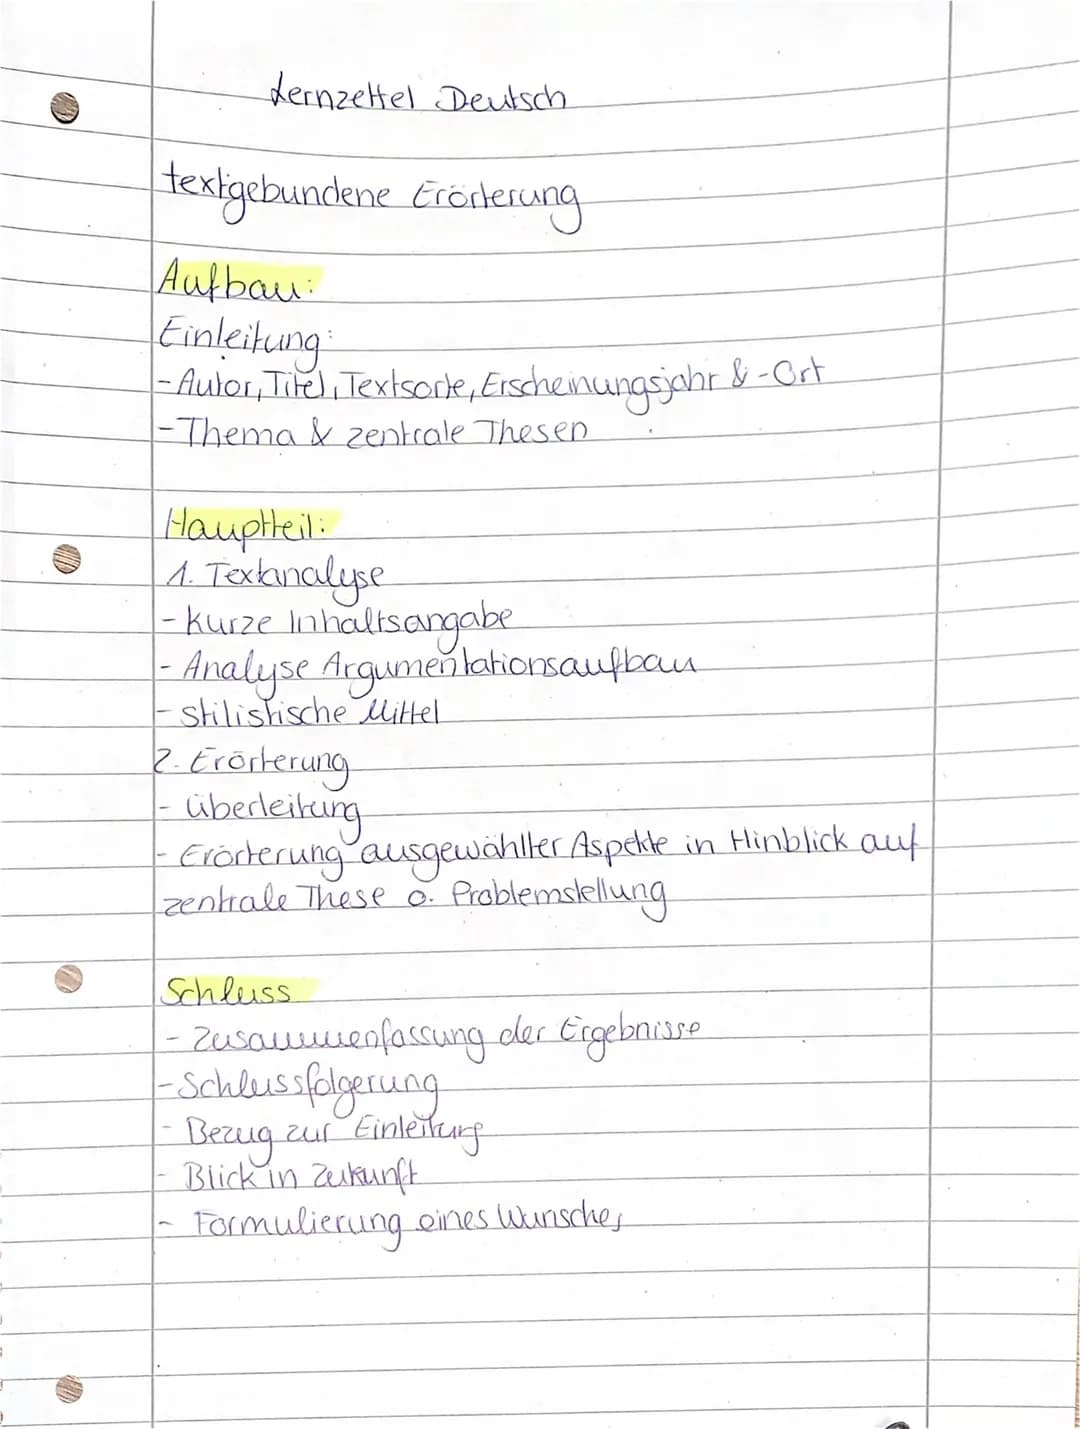 Lernzettel Deutsch
textgebundene Erörterung
Aufbau:
Einleitung:
- Autor, Titel, Textsorte, Erscheinungsjahr & -Ort
- Thema & zentrale Thesen
Hauptteil:
1. Textanalyse
- kurze Inhaltsangabe
- Analyse Argumentationsaufbau
- stilistische Mittel
2. Erörterung
- Überleitung
- Erörterung ausgewählter Aspekte in Hinblick auf
zentrale These o. Problemstellung
Schluss
- Zusammenfassung der Ergebnisse
- Schlussfolgerung
- Bezug zur Einleitung
- Blick in Zukunft
- Formulierung eines Wunsches